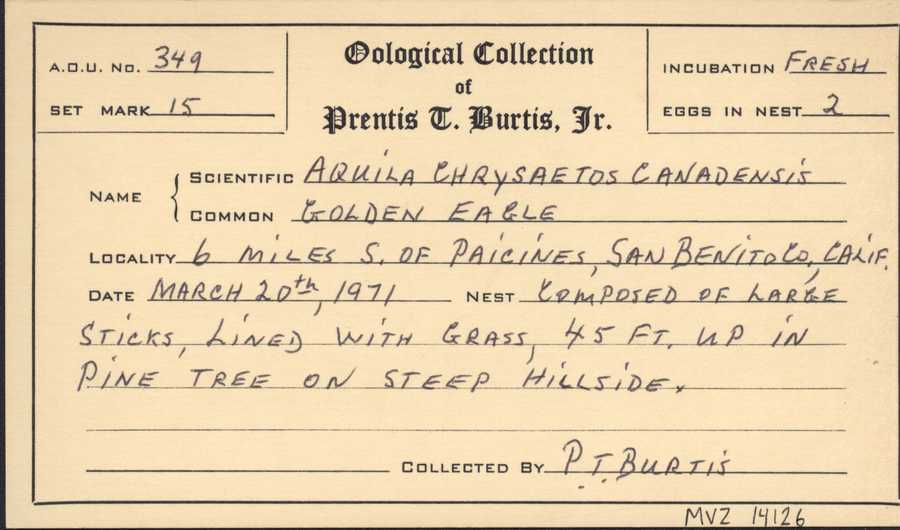 Oological Collection
of
Prentis T. Burtis, Jr.
A.O.U. No. 349
SET MARK 15
INCUBATION FRESH
EGGS IN NEST 2
NAME
SCIENTIFIC AQUILA CHRYSAETOS CANADENSIS
COMMON GOLDEN EAGLE
LOCALITY 6 MILES S. OF PAICINES, SAN BENITO CO, CALIF.
DATE MARCH 20th, 1971 NEST COMPOSED OF LARGE
STICKS, LINED WITH GRASS, 45 FT. UP IN
PINE TREE ON STEEP HILLSIDE.
COLLECTED BY P.T. BURTIS
MVZ 14126